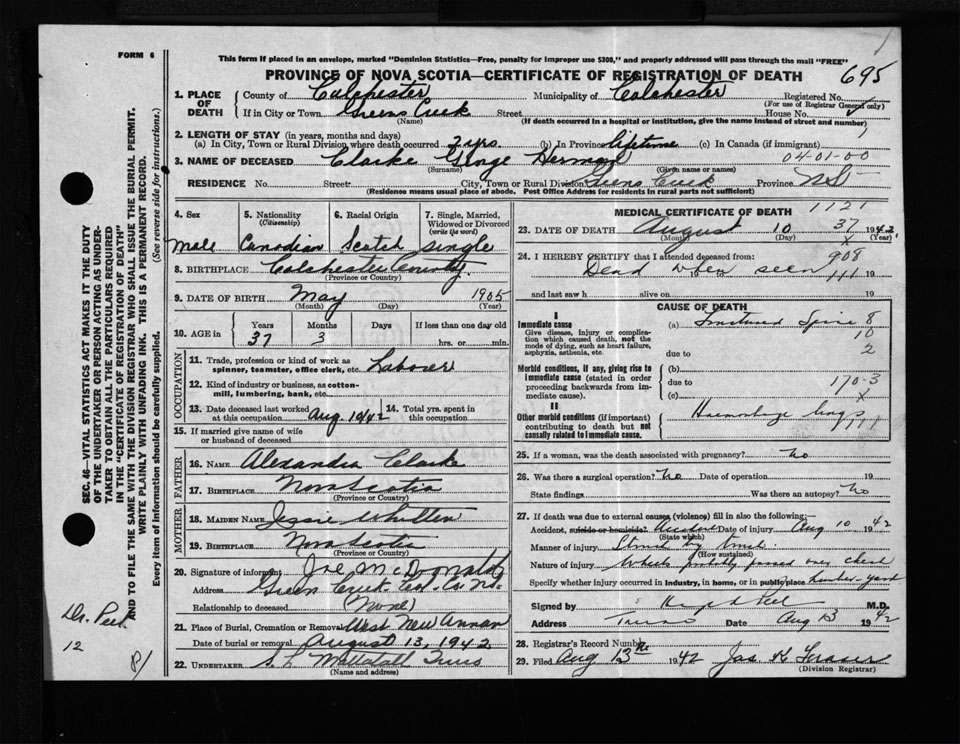 FORM 6
This form if placed in an envelope, marked "Dominion Statistics—Free, penalty for improper use $300," and properly addressed will pass through the mail "FREE"
PROVINCE OF NOVA SCOTIA—CERTIFICATE OF REGISTRATION OF DEATH 695
1. PLACE OF DEATH County of Colchester Municipality of Colchester Registered No.
(For use of Registrar General only)
If in City or Town Greens Creek Street House No.
(Name) (If death occurred in a hospital or institution, give the name instead of street and number)
2. LENGTH OF STAY (in years, months and days)
(a) In City, Town or Rural Division where death occurred 2 yrs (b) In Province lifetime (c) In Canada (if immigrant)
3. NAME OF DECEASED Clarke George Herman 04-01-00
(Surname) (Given name or names)
RESIDENCE No. Street City, Town or Rural Division Greens Creek Province N.S.
(Residence means usual place of abode. Post Office Address for residents in rural parts not sufficient)
SEC. 46—VITAL STATISTICS ACT MAKES IT THE DUTY
OF THE UNDERTAKER OR PERSON ACTING AS UNDER-
TAKER TO OBTAIN ALL THE PARTICULARS REQUIRED
IN THE "CERTIFICATE OF REGISTRATION OF DEATH"
AND TO FILE THE SAME WITH THE DIVISION REGISTRAR WHO SHALL ISSUE THE BURIAL PERMIT.
WRITE PLAINLY WITH UNFADING INK. THIS IS A PERMANENT RECORD.
Every item of information should be carefully supplied. (See reverse side for instructions.)
4. Sex 5. Nationality (Citizenship) 6. Racial Origin 7. Single, Married, Widowed or Divorced (write the word)
Male Canadian Scotch single
8. BIRTHPLACE Colchester County
(Province or Country)
9. DATE OF BIRTH May 1905
(Month) (Day) (Year)
10. AGE in Years Months Days If less than one day old
37 3 hrs. or min.
OCCUPATION
11. Trade, profession or kind of work as spinner, teamster, office clerk, etc. Laborer
12. Kind of industry or business, as cotton-mill, lumbering, bank, etc.
13. Date deceased last worked at this occupation Aug. 10/42 14. Total yrs. spent in this occupation
15. If married give name of wife or husband of deceased
FATHER
16. NAME Alexander Clarke
17. BIRTHPLACE Nova Scotia
(Province or Country)
MOTHER
18. MAIDEN NAME Jessie Whitten
19. BIRTHPLACE Nova Scotia
(Province or Country)
20. Signature of informant Joe McDonald
Address Green Creek Col. Co. N.S.
Relationship to deceased (None)
21. Place of Burial, Cremation or Removal West New Annan
Date of burial or removal August 13, 1942
22. UNDERTAKER Truro
(Name and address)
MEDICAL CERTIFICATE OF DEATH 1121
23. DATE OF DEATH August 10 37 1942
(Month) (Day) (Year)
24. I HEREBY CERTIFY that I attended deceased from: 908
Dead when seen 111 19
and last saw h alive on 19
CAUSE OF DEATH
I
Immediate cause
Give disease, injury or complication which caused death, not the mode of dying, such as heart failure, asphyxia, asthenia, etc.
(a) Fractured Spine 8
10
due to 2
Morbid conditions, if any, giving rise to immediate cause (stated in order proceeding backwards from immediate cause).
(b)
due to 170-3
(c) x
II
Other morbid conditions (if important) contributing to death but not causally related to immediate cause.
Haemorrhage lungs
25. If a woman, was the death associated with pregnancy? No
26. Was there a surgical operation? No Date of operation 19
State findings Was there an autopsy? No
27. If death was due to external causes (violence) fill in also the following:—
Accident, suicide or homicide? Accident Date of injury Aug 10 1942
(State which)
Manner of injury Struck by truck
(How sustained)
Nature of injury Wheels passed over chest
Specify whether injury occurred in industry, in home, or in public place Lumber-yard
Signed by M.D.
Address Truro Date Aug 13 1942
28. Registrar's Record Number
29. Filed Aug 13th 1942 Jas K Fraser
(Division Registrar)
Dr. Peel
12